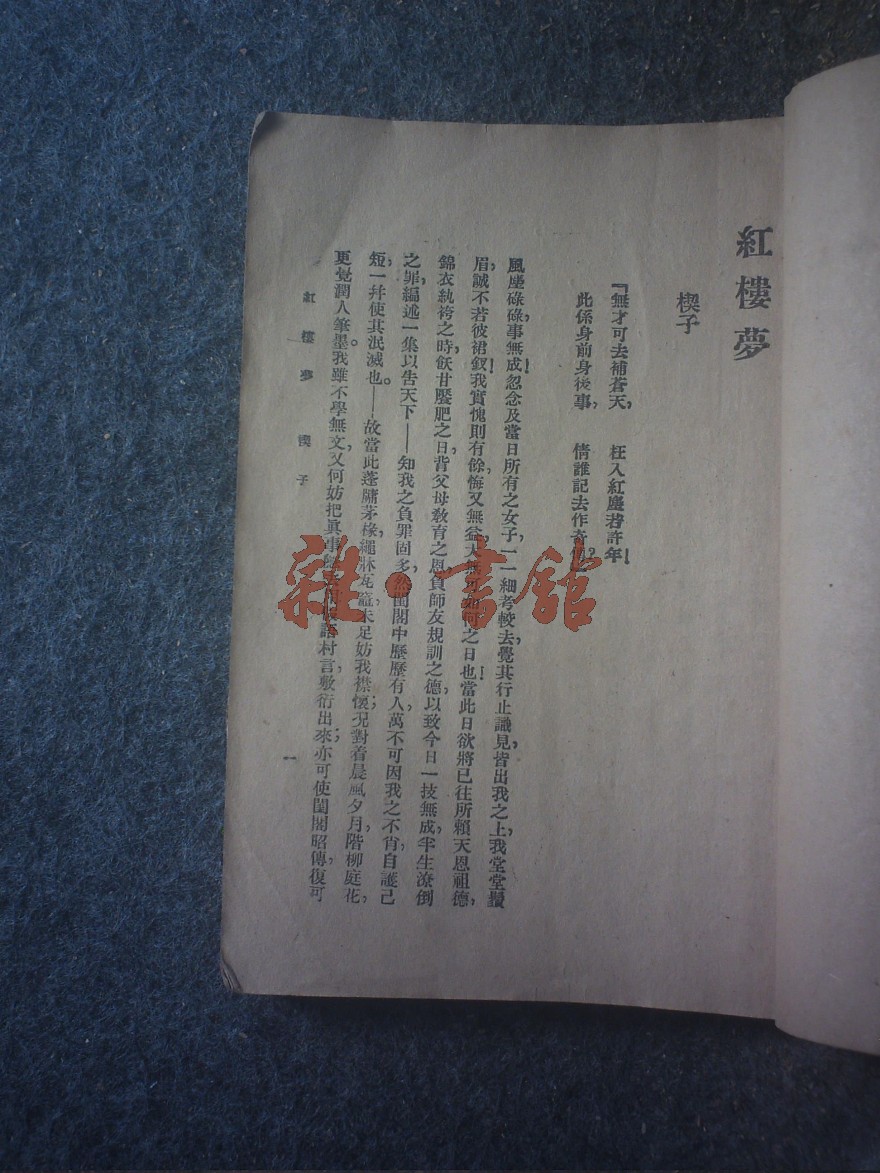 紅樓夢
楔子
『無才可去補蒼天，　枉入紅塵若許年！
此係身前身後事，　倩誰記去作奇
風塵碌碌，事無成，忽念及當日所有之女子，一一細考較去，覺其行止識見皆出我之上，我堂堂鬚
眉，誠不若彼裙釵！我實愧則有餘，悔又無益，大無可如何之日也！當此日，欲將已往所賴天恩祖德，
錦衣紈袴之時，飫甘饜肥之日，背父母教育之恩，負師友規訓之德，以致今日一技無成，半生潦倒
之罪，編述一集以告天下——知我之負罪固多，然閨閣中歷歷有人，萬不可因我之不肖，自護己
短，一幷使其泯滅也。——故當此蓬牖茅椽，繩牀瓦竈，未足妨我襟懷；況對着晨風夕月，階柳庭花，
更覺潤人筆墨。我雖不學無文，又何妨把眞事語村言敷衍出來；亦可使閨閣昭傳，復可
紅樓夢　楔子
一
雜·書館